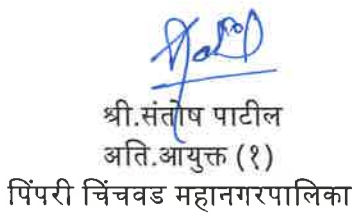 श्री.संतोष पाटील
अति.आयुक्त (१)
पिंपरी चिंचवड महानगरपालिका